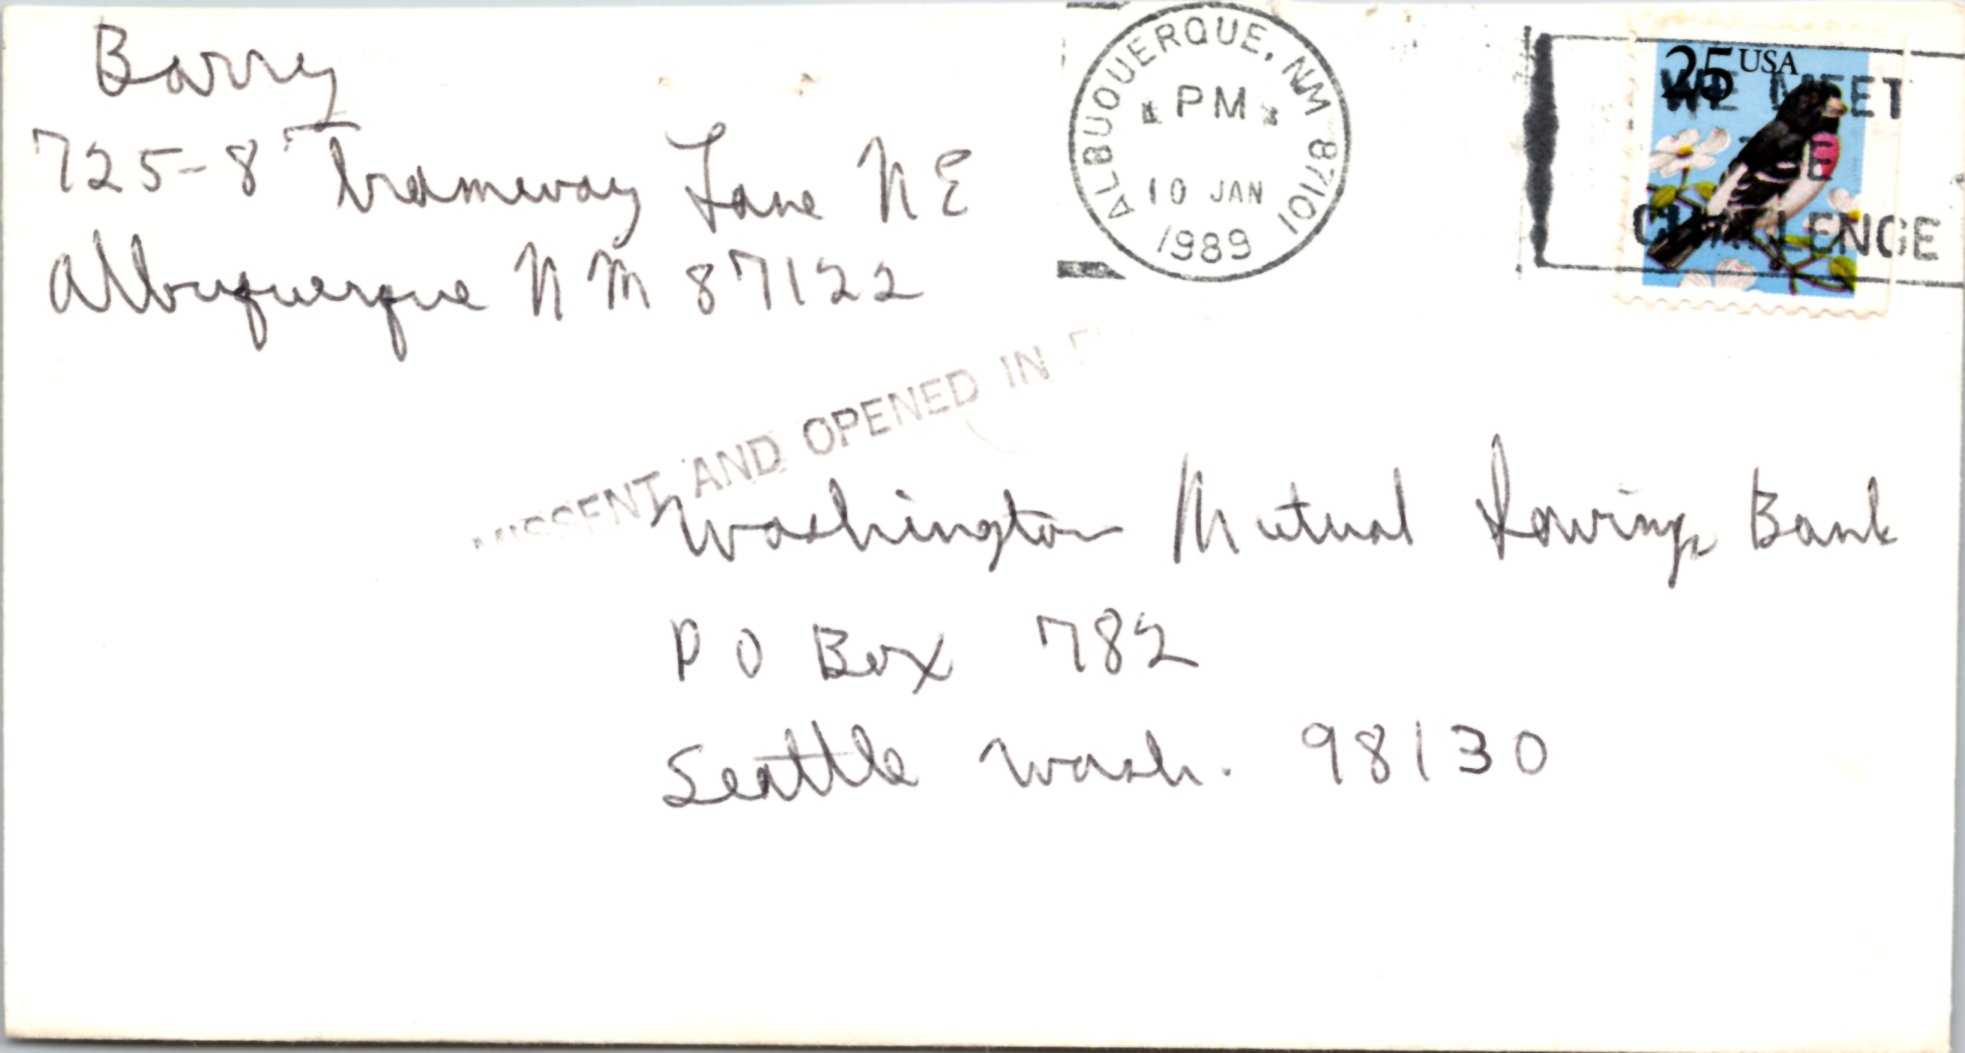 Barry
725-8 Tramway Lane NE
Albuquerque NM 87122
ALBUQUERQUE, NM 87101
PM
10 JAN
1989
25 USA
WE MEET
THE
CHALLENGE
MISSENT AND OPENED IN
Washington Mutual Savings Bank
P O Box 782
Seattle Wash. 98130